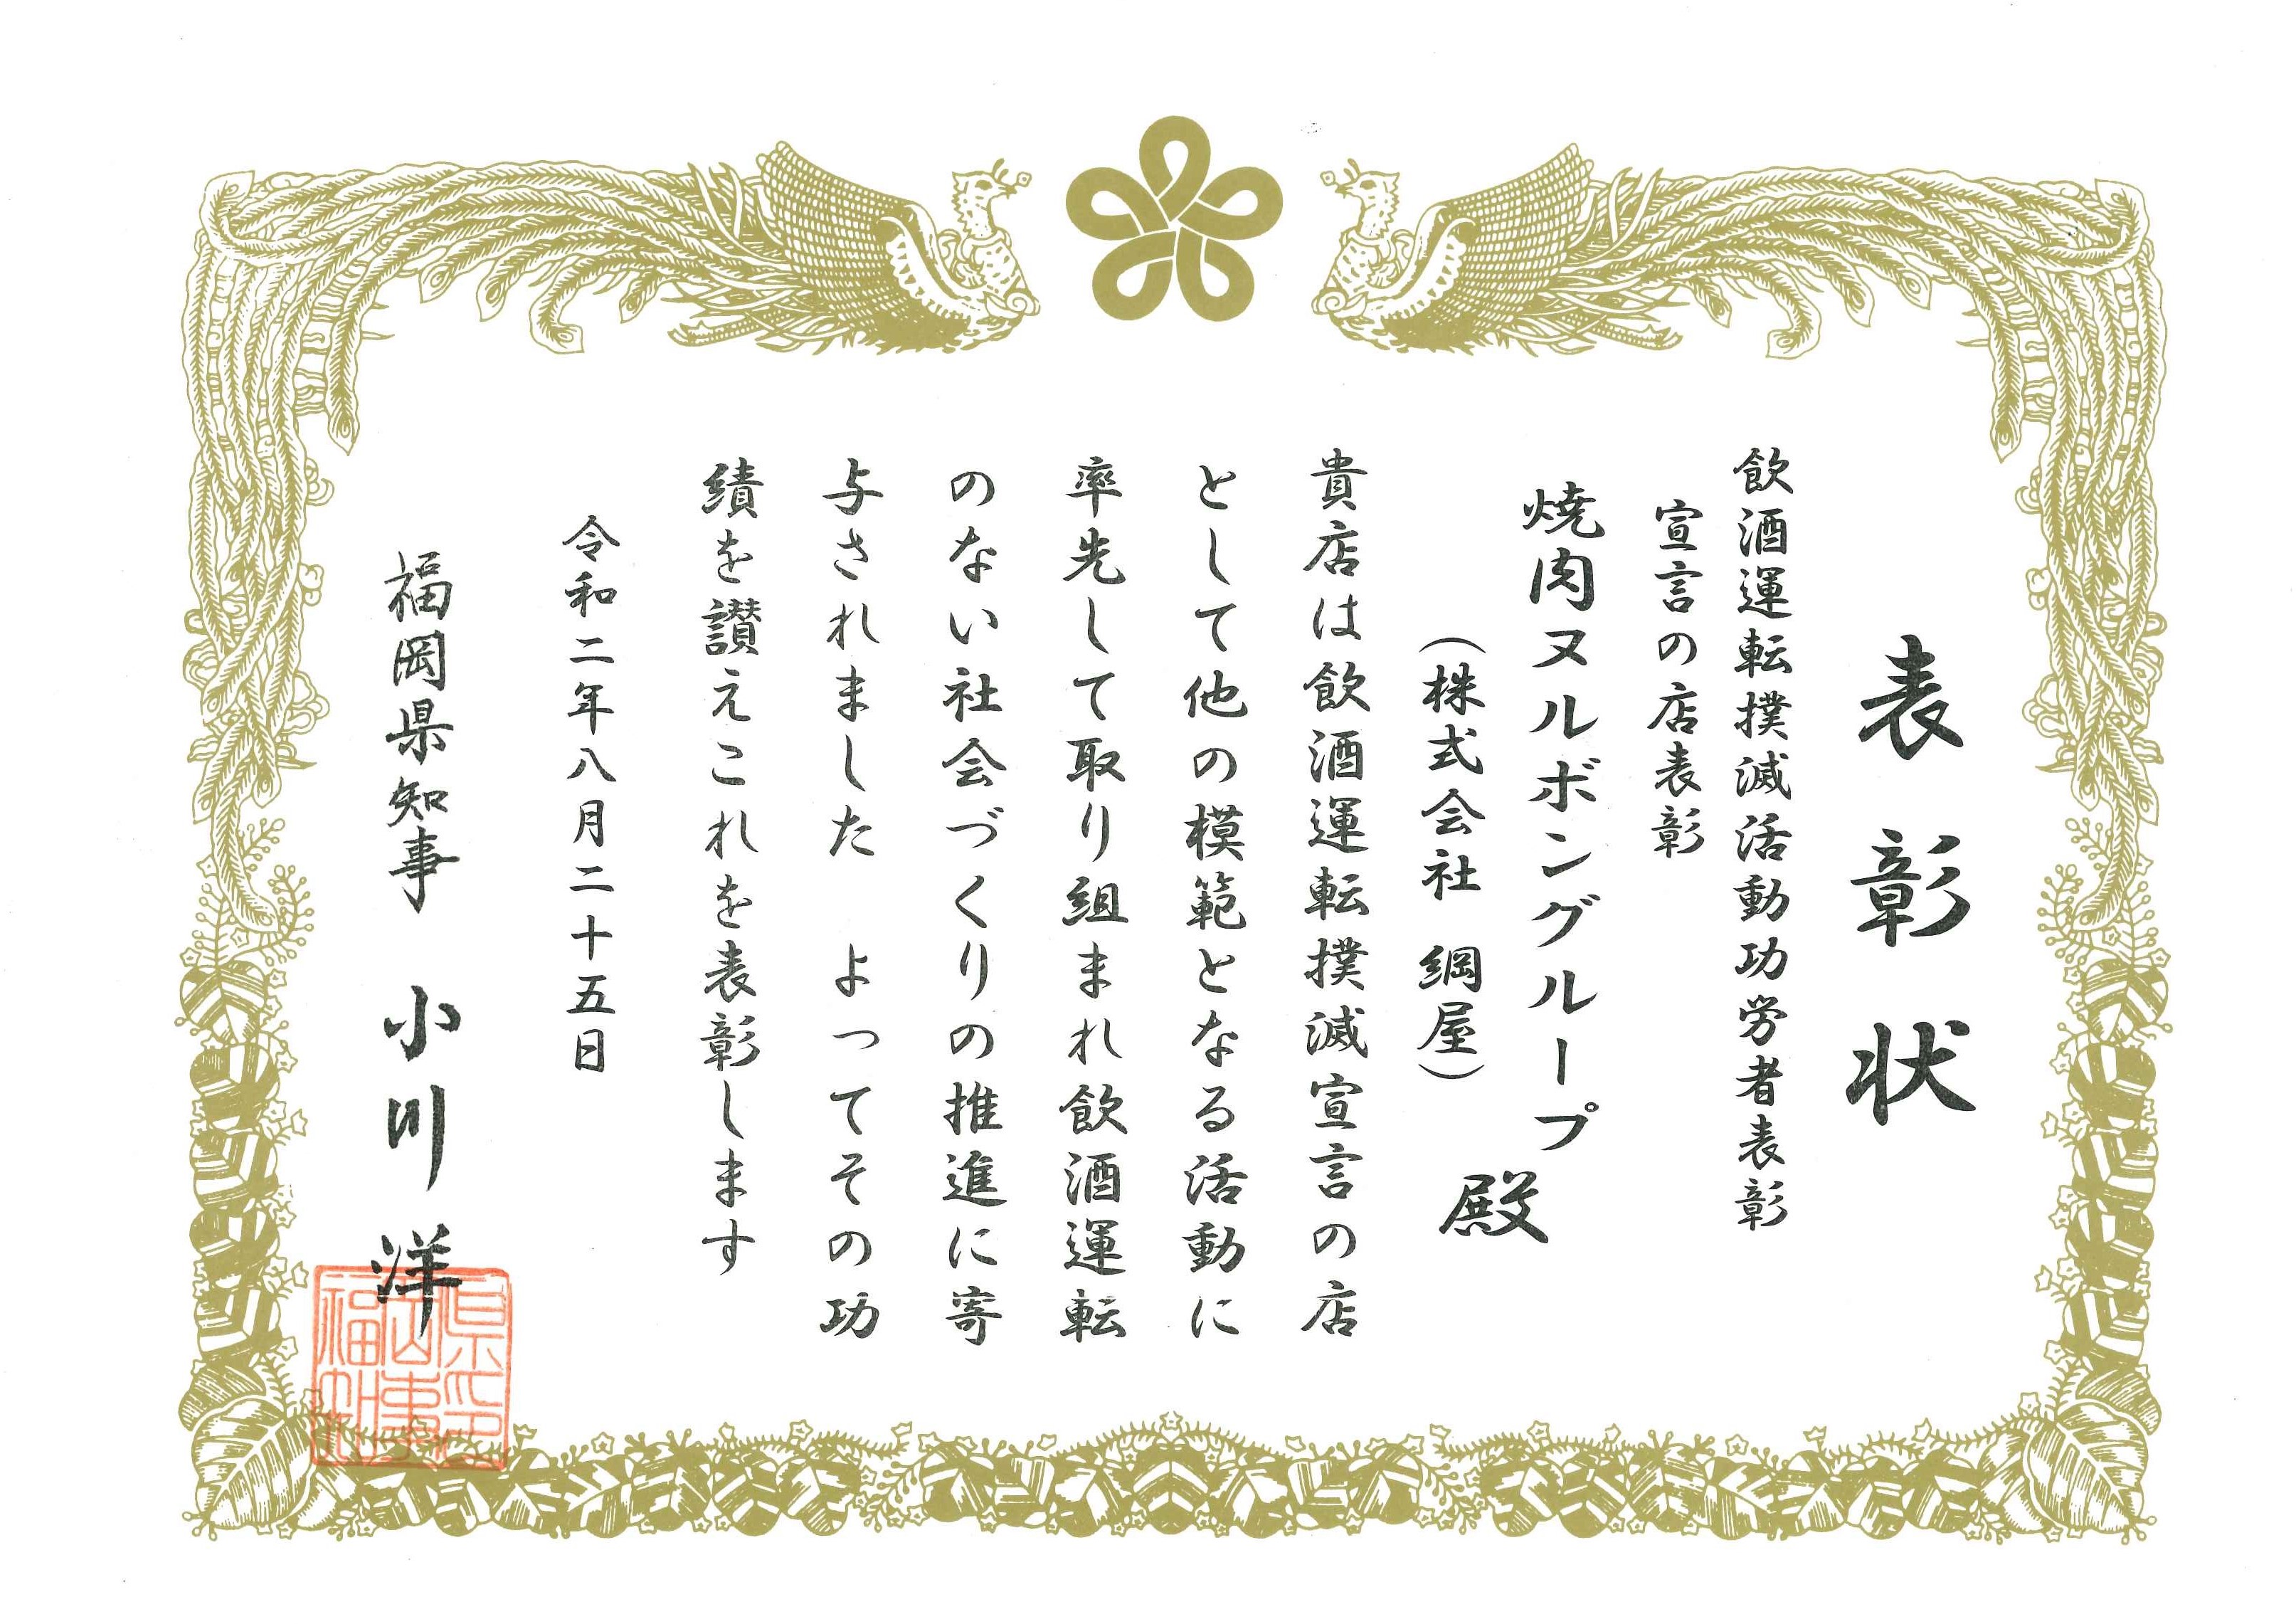 表彰状
飲酒運転撲滅活動功労者表彰
宣言の店表彰
焼肉ヌルボングループ
(株式会社 綱屋)
殿
貴店は飲酒運転撲滅宣言の店
として他の模範となる活動に
率先して取り組まれ飲酒運転
のない社会づくりの推進に寄
与されました よってその功
績を讃えこれを表彰します
令和二年八月二十五日
福岡県知事 小川 洋
福岡県知事印